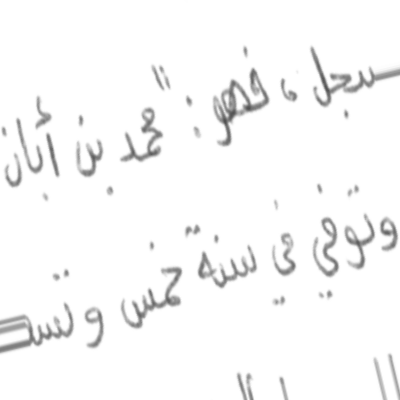 سجل، فهو: "محمد بن أبان
وتوفي في سنة خمس وتسـ